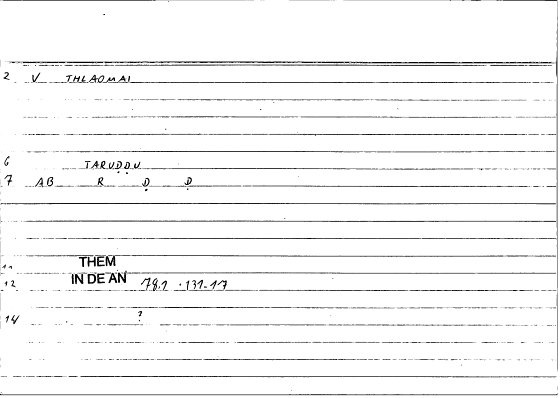 2 V THLAOMAI
6 TARUḌḌU
7 AB R Ḍ Ḍ
11 THEM
12 IN DE AN 78.1 · 131-17
14 ?